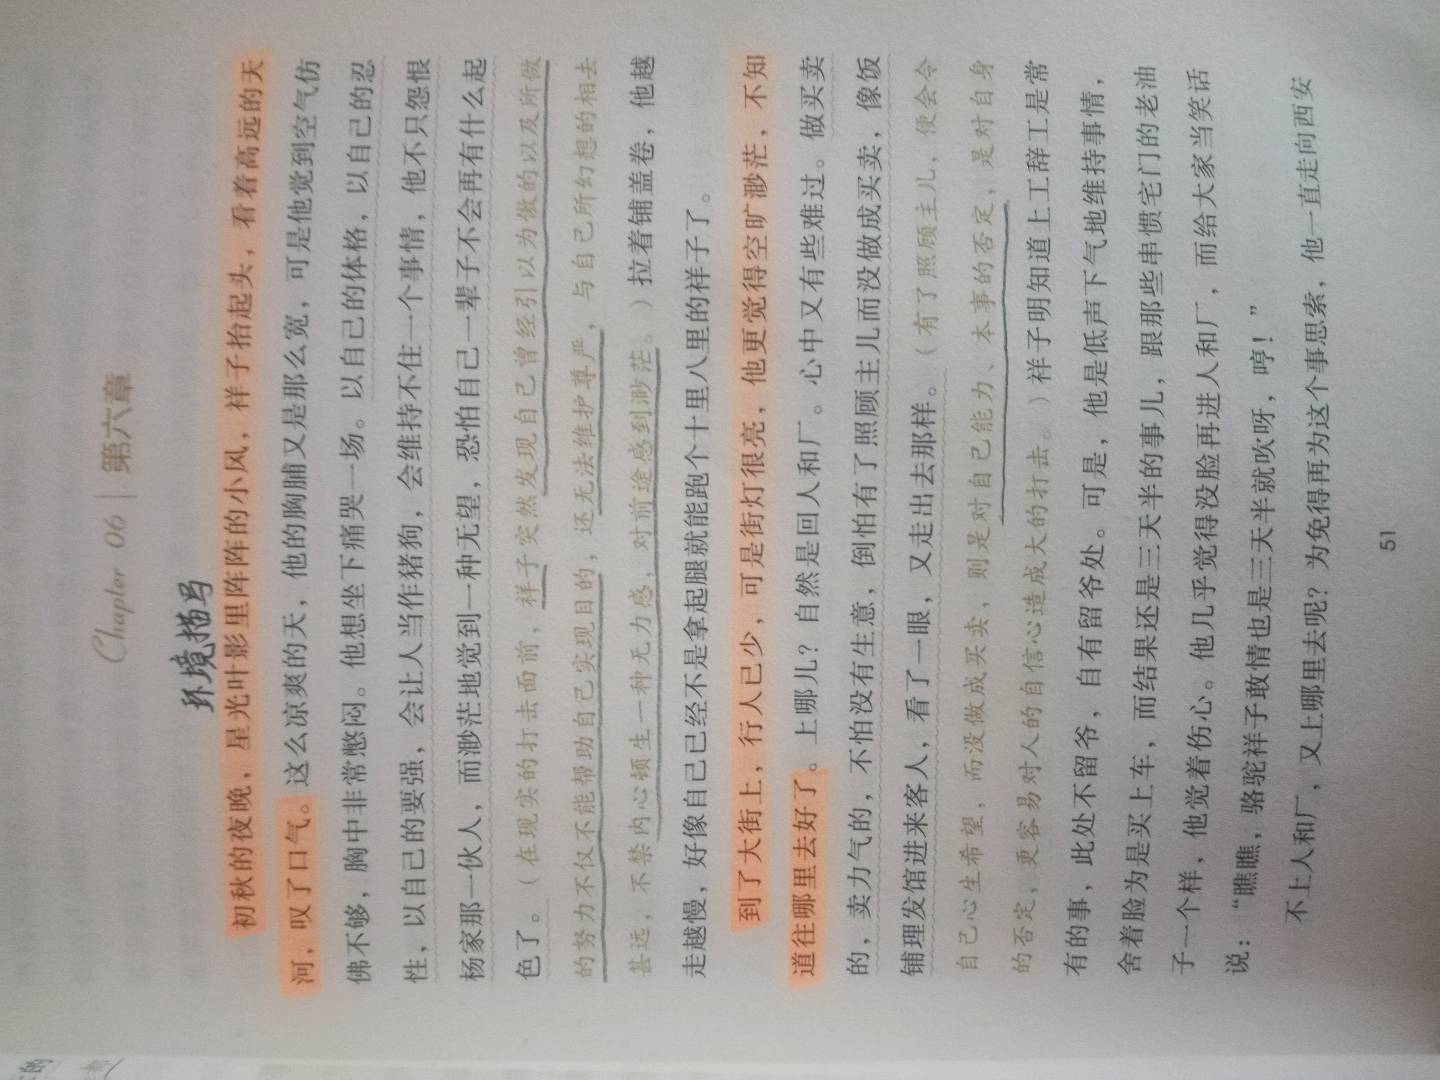 Chapter 06 | 第六章
环境描写
初秋的夜晚，星光叶影里阵阵的小风，祥子抬起头，看着高远的天
河，叹了口气。这么凉爽的天，他的胸脯又是那么宽，可是他觉到空气仿
佛不够，胸中非常憋闷。他想坐下痛哭一场。以自己的体格，以自己的忍
性，以自己的要强，会让人当作猪狗，会维持不住一个事情，他不只怨恨
杨家那一伙人，而渺茫地觉到一种无望，恐怕自己一辈子不会再有什么起
色了。（在现实的打击面前，祥子突然发现自己曾经引以为傲的以及所做
的努力不仅不能帮助自己实现目的，还无法维护尊严，与自己所幻想的相去
甚远，不禁内心顿生一种无力感，对前途感到渺茫。）拉着铺盖卷，他越
走越慢，好像自己已经不是拿起腿就能跑个十里八里的祥子了。
到了大街上，行人已少，可是街灯很亮，他更觉得空旷渺茫，不知
道往哪里去好了。上哪儿？自然是回人和厂。心中又有些难过。做买卖
的，卖力气的，不怕没有生意，倒怕有了照顾主儿而没做成买卖，像饭
铺理发馆进来客人，看了一眼，又走出去那样。（有了照顾主儿，便会令
自己心生希望，而没做成买卖，则是对自己能力、本事的否定，是对自身
的否定，更容易对人的自信心造成大的打击。）祥子明知道上工辞工是常
有的事，此处不留爷，自有留爷处。可是，他是低声下气地维持事情，
舍着脸为是买上车，而结果还是三天半的事儿，跟那些串惯宅门的老油
子一个样，他觉着伤心。他几乎觉得没脸再进人和厂，而给大家当笑话
说：“瞧瞧，骆驼祥子敢情也是三天半就吹呀，哼！”
不上人和厂，又上哪里去呢？为免得再为这个事思索，他一直走向西安
51